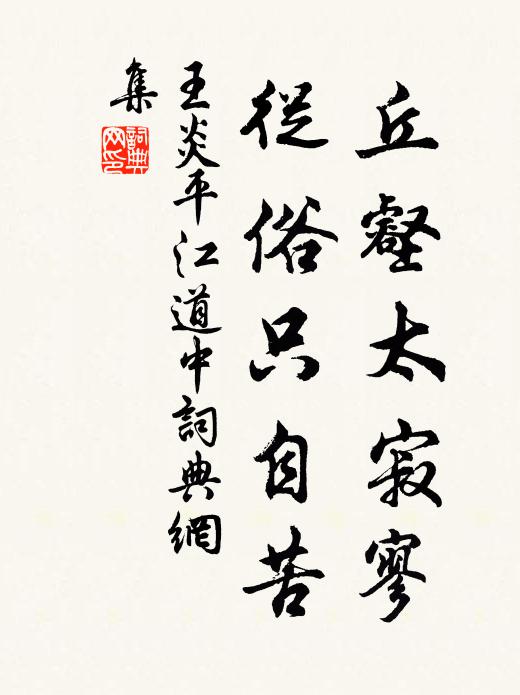 丘壑太寂寥
從俗只自苦
王炎平江道中詞典網
集
詞典
网印